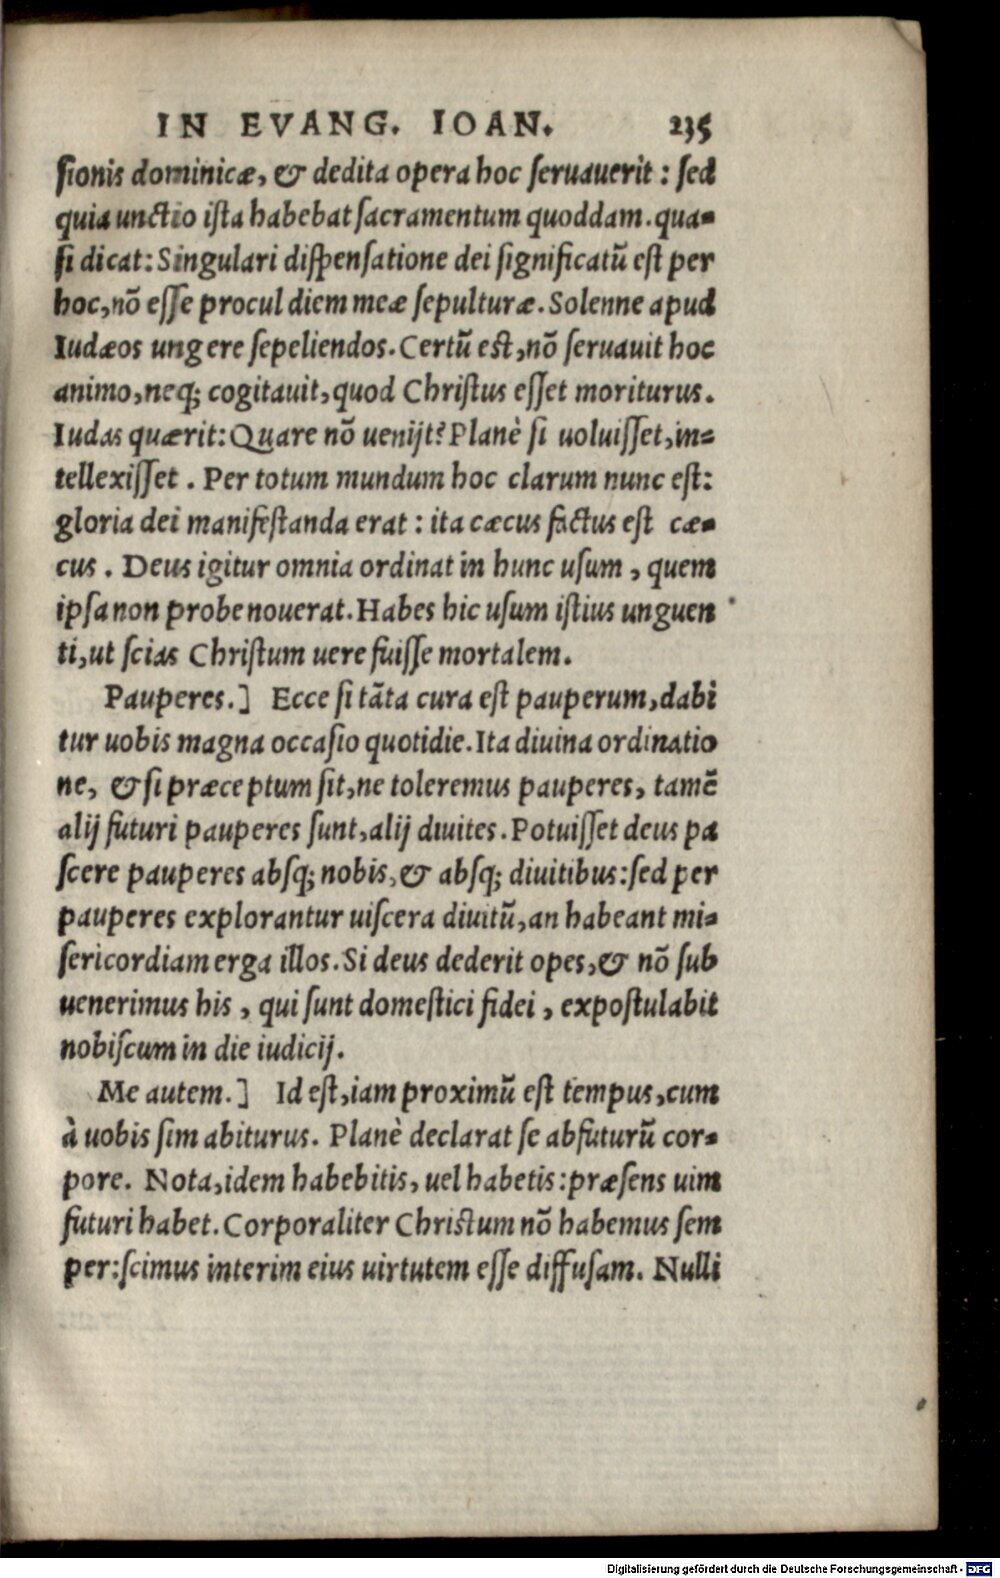 IN EVANG. IOAN. 235
ſionis dominicæ, & dedita opera hoc ſeruauerit : ſed
quia unctio iſta habebat ſacramentum quoddam. qua-
ſi dicat: Singulari diſpenſatione dei ſignificatũ eſt per
hoc, nõ eſſe procul diem meæ ſepulturæ. Solenne apud
Iudæos ungere ſepeliendos. Certũ est, nõ ſeruauit hoc
animo, neq; cogitauit, quod Chriſtus eſſet moriturus.
Iudas quærit: Quare nõ uenijt? Planè ſi uoluiſſet, in-
tellexiſſet . Per totum mundum hoc clarum nunc eſt:
gloria dei manifeſtanda erat : ita cæcus factus eſt cæ-
cus . Deus igitur omnia ordinat in hunc uſum , quem
ipſa non probe nouerat. Habes hic uſum iſtius unguen
ti, ut ſcias Chriſtum uere fuiſſe mortalem.
Pauperes.] Ecce ſi tãta cura eſt pauperum, dabi
tur uobis magna occaſio quotidie. Ita diuina ordinatio
ne, & ſi præceptum ſit, ne toleremus pauperes, tamẽ
alij futuri pauperes ſunt, alij diuites. Potuiſſet deus pa
ſcere pauperes abſq; nobis, & abſq; diuitibus: ſed per
pauperes explorantur uiſcera diuitũ, an habeant mi-
ſericordiam erga illos. Si deus dederit opes, & nõ ſub
uenerimus his , qui ſunt domeſtici fidei , expoſtulabit
nobiſcum in die iudicij.
Me autem.] Id eſt, iam proximũ eſt tempus, cum
à uobis ſim abiturus. Planè declarat ſe abfuturũ cor-
pore. Nota, idem habebitis, uel habetis: præſens uim
futuri habet. Corporaliter Christum nõ habemus ſem
per: ſcimus interim eius uirtutem eſſe diffuſam. Nulli
Digitalisierung gefördert durch die Deutsche Forschungsgemeinschaft - DFG